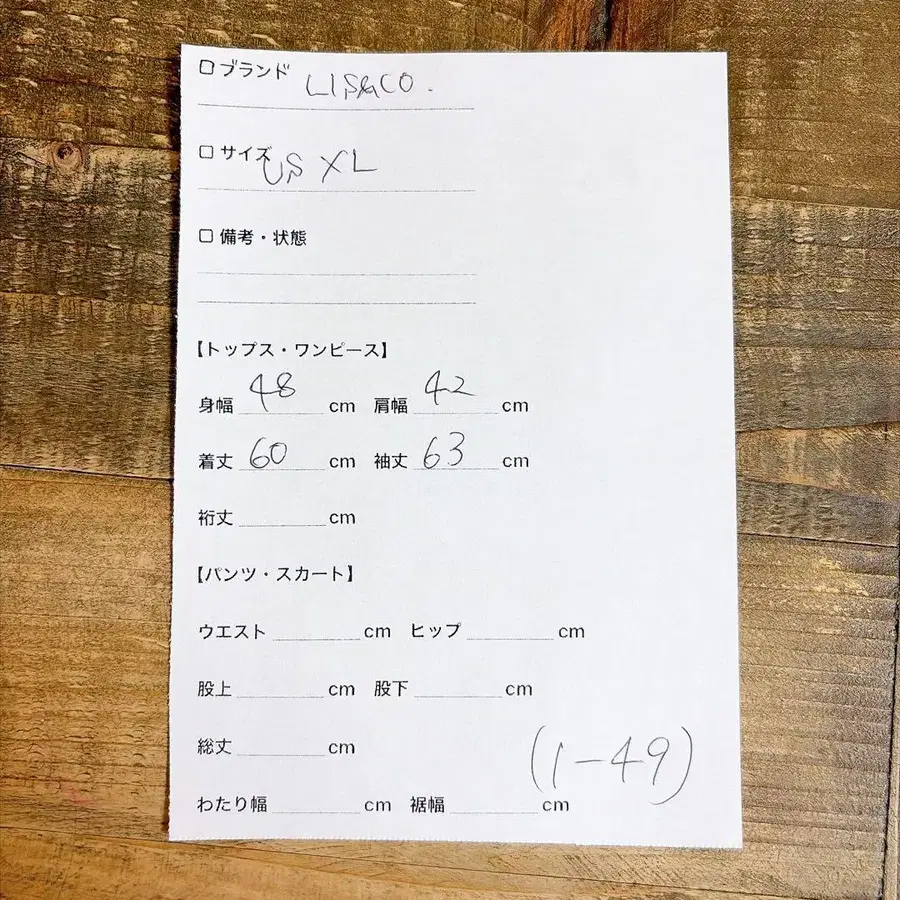 □ ブランド LIS&CO.
□ サイズ US XL
□ 備考・状態
【トップス・ワンピース】
身幅 48 cm 肩幅 42 cm
着丈 60 cm 袖丈 63 cm
裄丈 cm
【パンツ・スカート】
ウエスト cm ヒップ cm
股上 cm 股下 cm
総丈 cm
(1-49)
わたり幅 cm 裾幅 cm